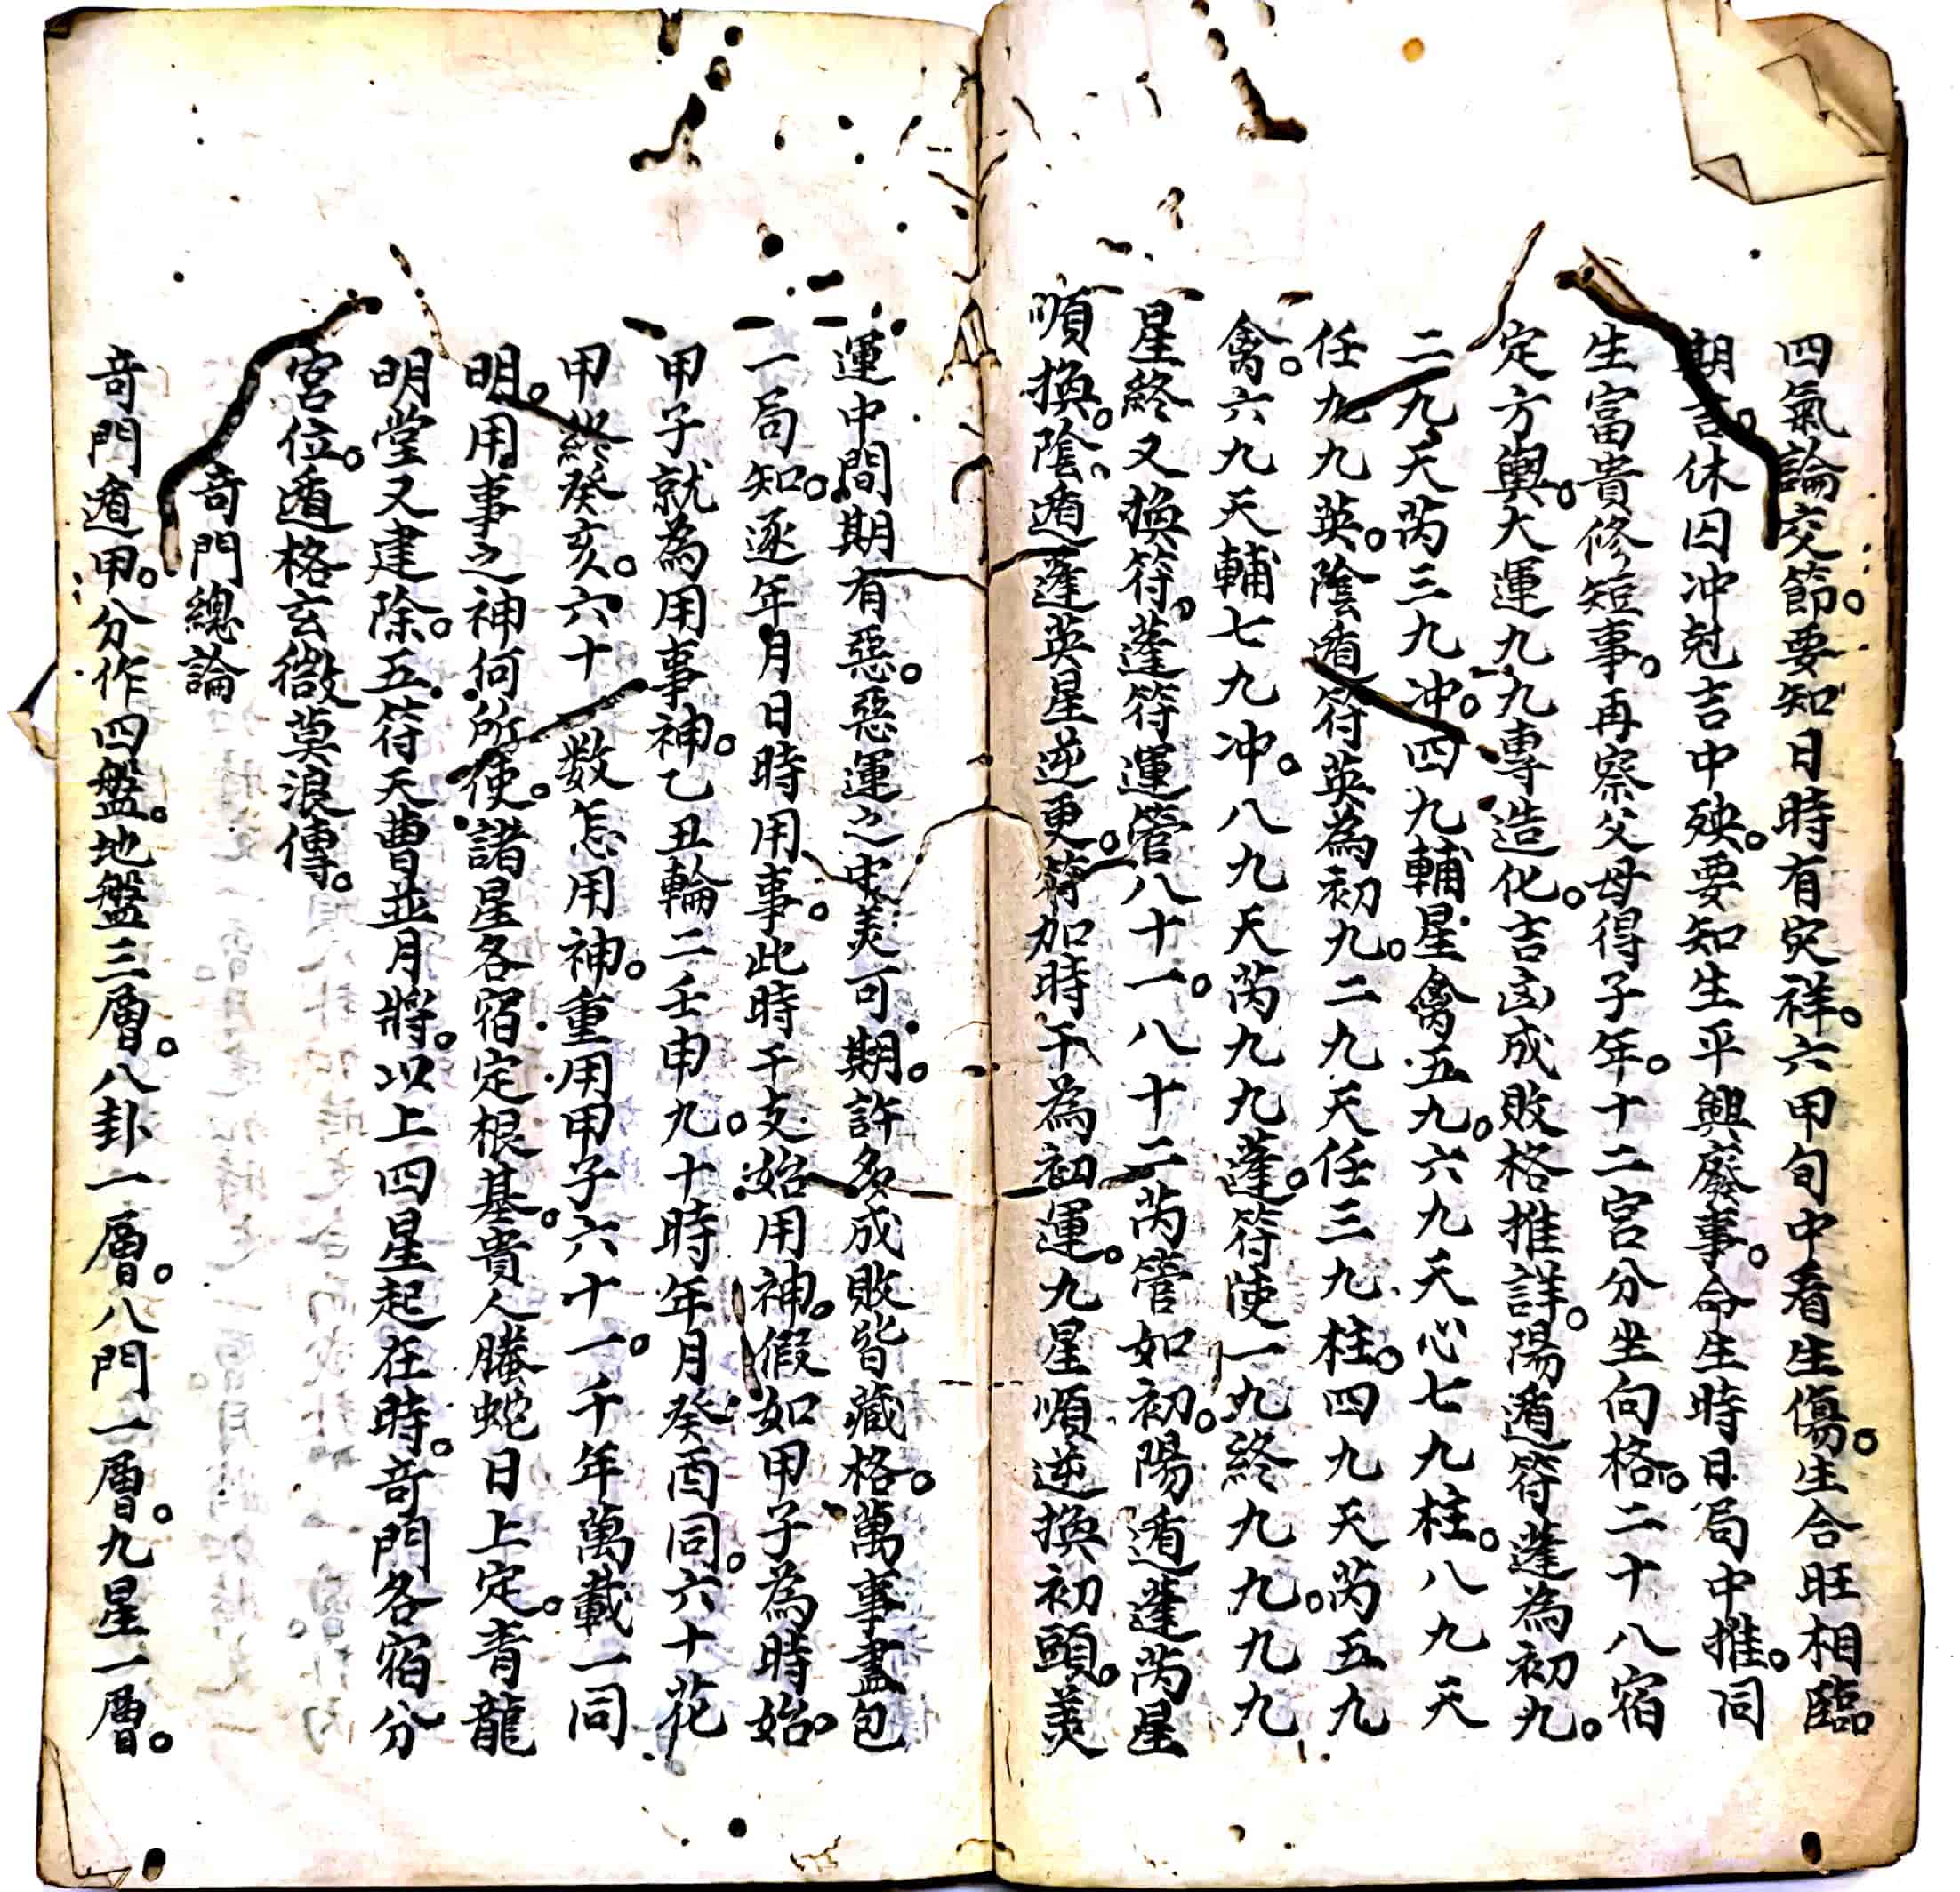 四氣論交節。要知日時有灾祥。六甲旬中看生傷。生合旺相臨
期吉。休囚冲尅吉中殃。要知生平興廢事。命生時日局中推。同
生富貴修短事。再察父母得子年。十二宮分坐向格。二十八宿
定方輿。大運九九專造化。吉凶成敗格推詳。陽遁符蓬為初九。
二九天芮三九冲。四九輔星禽五九。六九天心七九柱。八九天
任九九英。陰遁符英為初九。二九天任三九柱。四九天芮五九
禽。六九天輔七九冲。八九天芮九九蓬。符使一九終九九。九九
星終又換符。蓬符運管八十一。八十二芮管如初。陽遁蓬芮星
順換。陰遁蓬英星逆更。符加時干為初運。九星順逆換初頭。美
運中間期有惡。惡運之中美可期。許多成敗皆藏格。萬事盡包
一局知。逐年月日時用事。此時干支始用神。假如甲子為時始。
甲子就為用事神。乙丑輪二壬申九。十時年月癸酉同。六十花
甲終癸亥。六十数怎用神。重用甲子六十一。千年萬載一同
明。用事之神何所使。諸星各宿定根基。貴人螣蛇日上定。青龍
明堂又建除。五符天曹並月將。以上四星起在時。奇門各宿分
宮位。遁格玄微莫浪傳。
奇門總論
奇門遁甲。分作四盤。地盤三層。八卦一層。八門一層。九星一層。